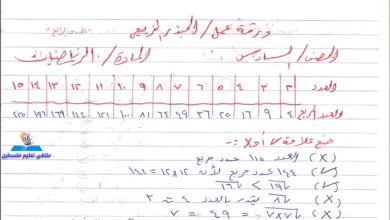 ورقة عمل / الجذر التربيعي
الصف / السادس
المادة / الرياضيات
العدد ٢ ٣ ٤ ٥ ٦ ٧ ٨ ٩ ١٠ ١١ ١٢ ١٣ ١٤ ١٥
العدد المربع ٤ ٩ ١٦ ٢٥ ٣٦ ٤٩ ٦٤ ٨١ ١٠٠ ١٢١ ١٤٤ ١٦٩ ١٩٦ ٢٢٥
ضع علامة √ أو X :-
(X) العدد ١١٥ عدد مربع
(√) ١٤٤ عدد مربع لأن ١٢×١٢ = ١٤٤
(√)
(X) √٨ يقدر بالعدد ٤ ≈ ٢
(√) √٧×٧ = √٤٩ = ٧
ملتقى تعليم فلسطين